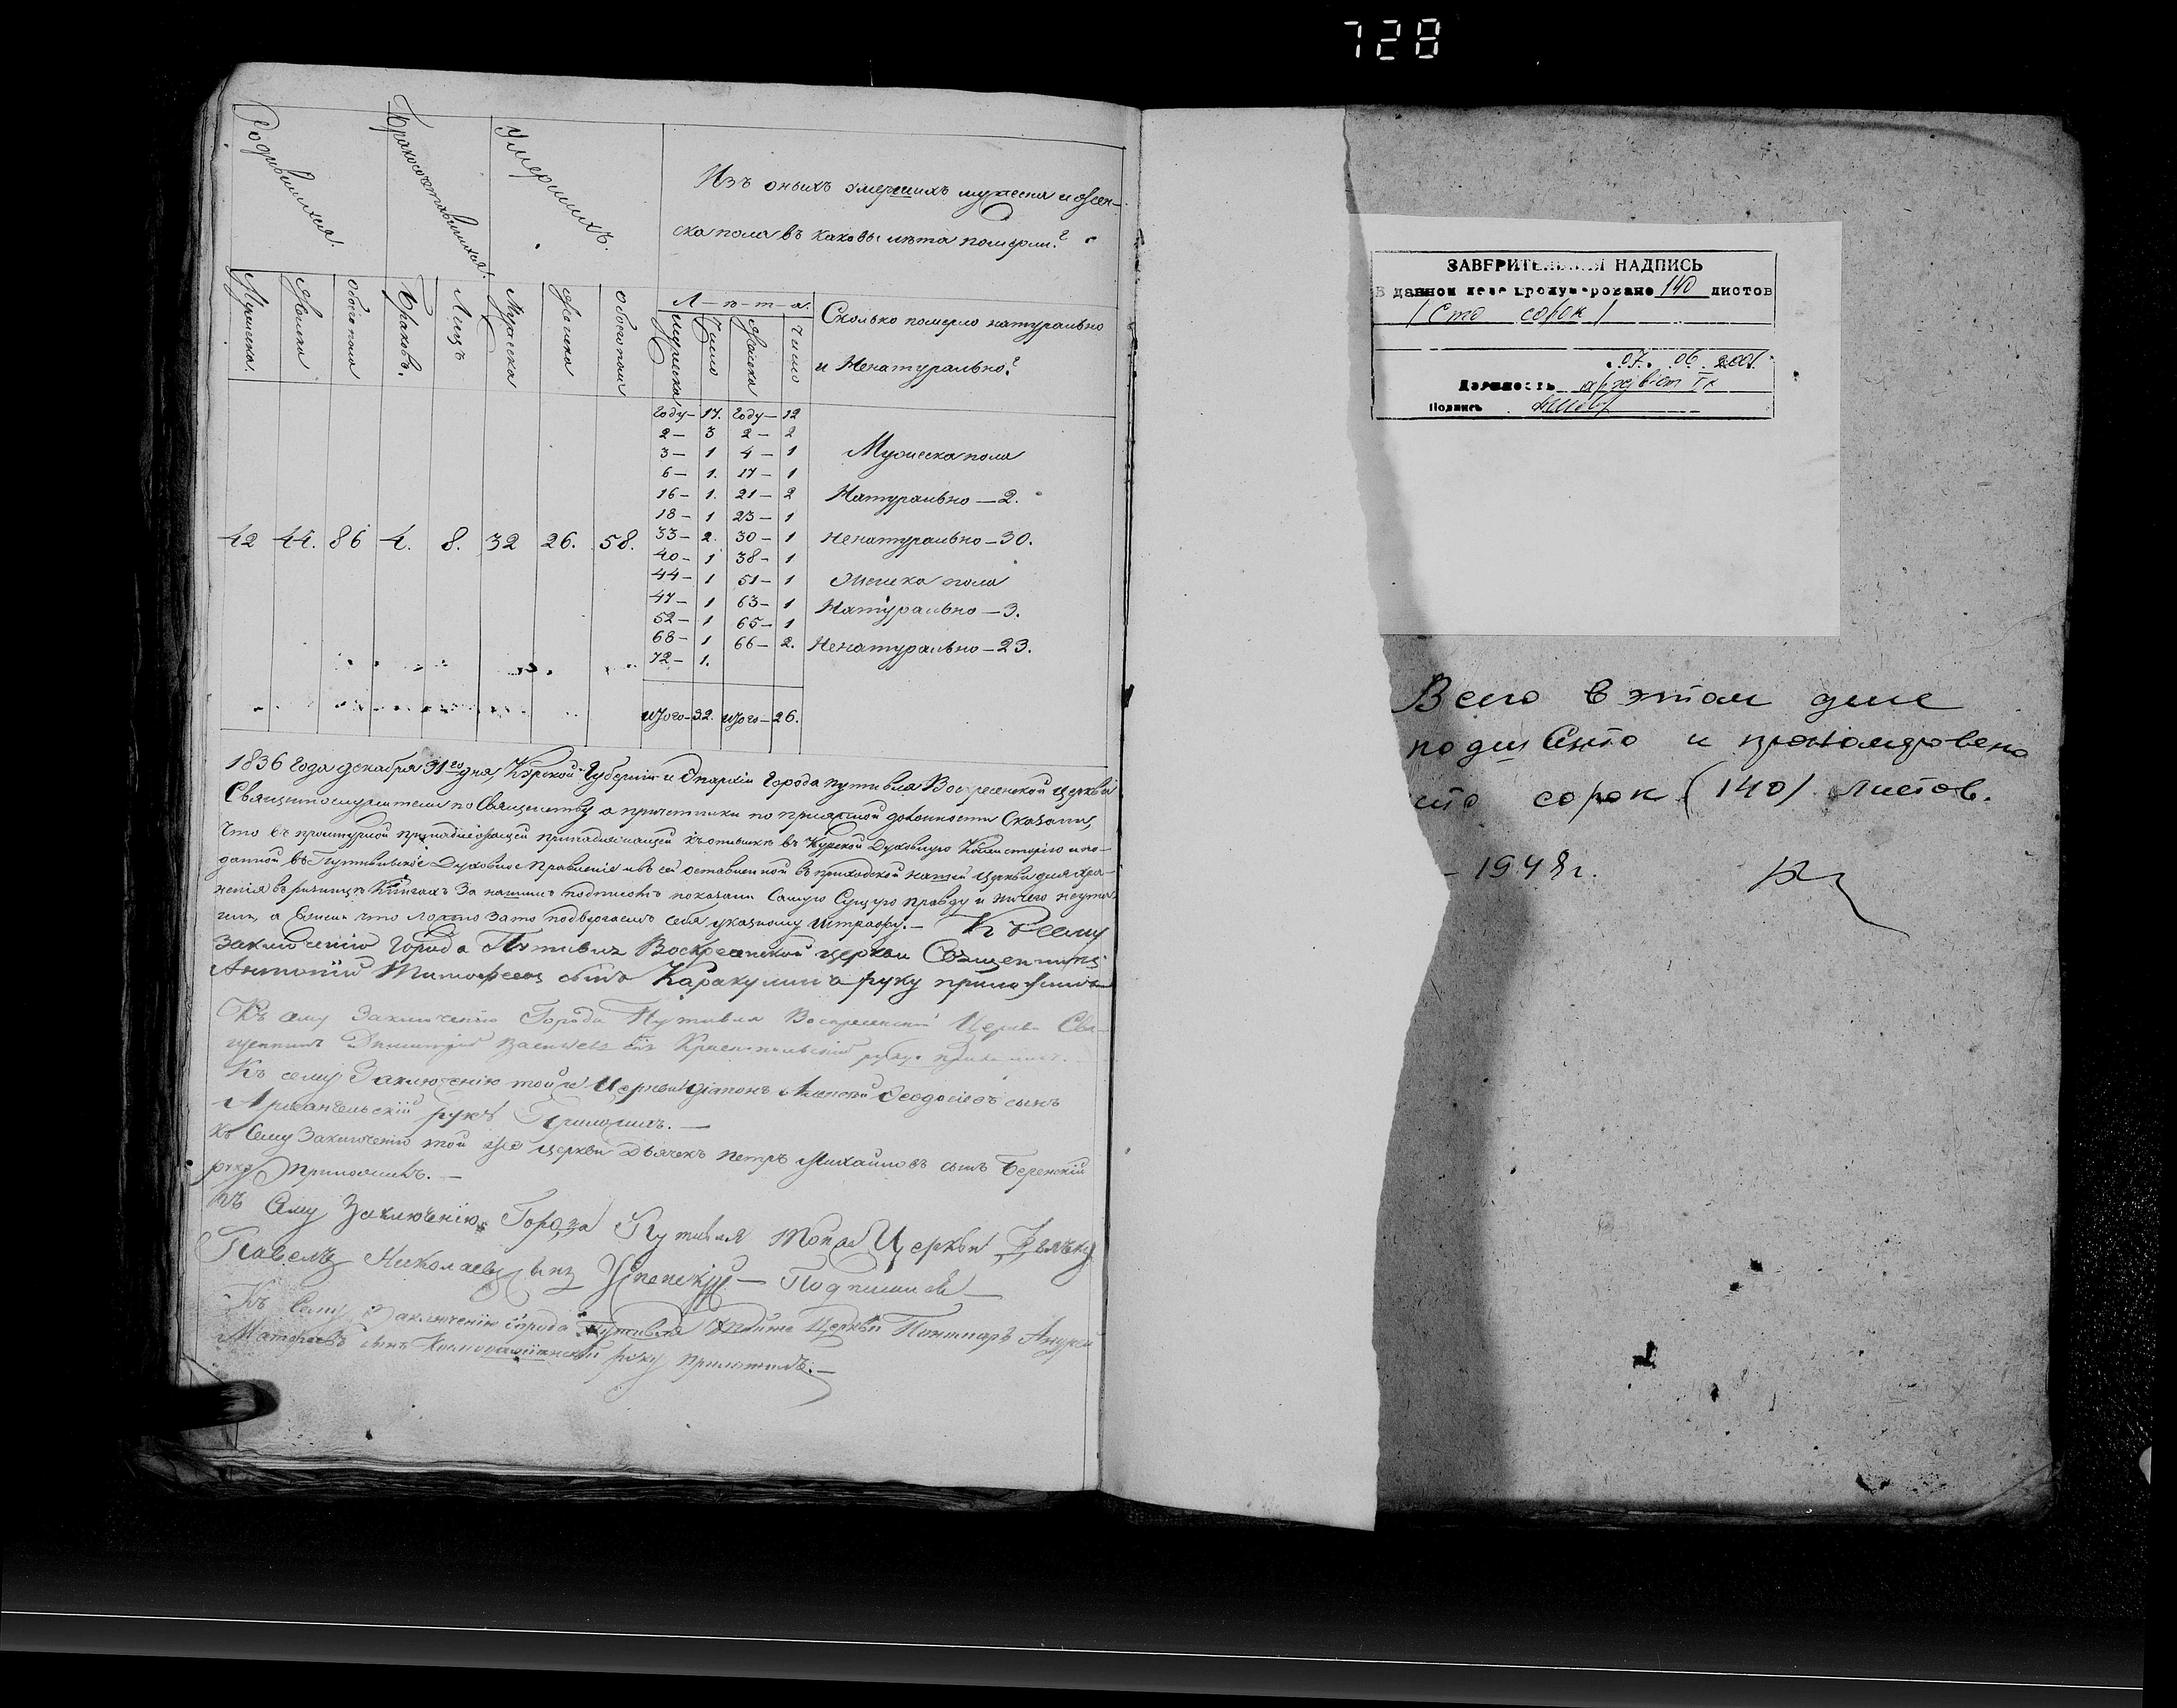 728
Родившихся.
Бракосочетавшихся.
Умершихъ.
Изъ оныхъ умершихъ мужеска и женска
ска пола въ каковы лѣта померли?
Мужеска.
Женска
Обоего пола
Браковъ.
Лицъ
Мужеска
Женска
Обоего пола
Л-ѣ-т-а.
Мужеска
Число
Женска
Число
Сколько померло натурально
и Ненатурально?
Году- 17. Году- 12
2- 3 2- 2
3- 1 4- 1
6- 1. 17- 1
16- 1. 21- 2
18- 1 23- 1
33- 2. 30- 1
40- 1 38- 1
44- 1 51- 1
47- 1 63- 1
52- 1 65- 1
68- 1 66- 2.
72- 1.
Итого-32. Итого-26.
42 44. 86 4. 8. 32 26. 58.
Мужеска пола
Натурально-2.
Ненатурально-30.
Женска пола
Натурально-3.
Ненатурально-23.
1836 года декабря 31го дня Курской Губернии и Епархіи Города Путивля Воскресенской церкви
Священнослужители по Священству а причетники по присяжной должности Сказали,
что въ въ Курской Духовную Консисторію и по-
данной въ Путивльское Духовное Правленіе и въ сей оставленной въ приходской нашей Церкви для хра-
ненія въ ризницѣ Книгахъ За нашимъ подписомъ показали Самую Сущую правду и ничего неута-
или, а ежели что ложно за то подвергаемъ себя указному штрафу.- Къ сему
заключенію города Путивля Воскресенской церкви Священникъ
Антоній Тимофеевъ сынъ Каракулинъ руку приложилъ
Къ сему Заключенію Города Путивля Воскресенской Церкви Свя-
щенникъ Димитрій сынъ Краснопольскій руку приложилъ.
Къ сему Заключенію той же Церкви Діаконъ Алексѣй Феодосіевъ сынъ
Архангельскій руку Приложилъ.-
Къ Сему Заключенію той же церкви Дьячекъ Петръ Михайловъ сынъ
руку Приложилъ.-
Къ Сему Заключенію Города Путивля тоя Церкви
Павелъ Николаевъ сынъ Успенскій- Подписался-
Къ Сему Заключенію города Путивля тойже Церкви Пономарь Андрей
Матфеевъ сынъ руку приложилъ.-
ЗАВЕРИТЕЛЬНАЯ НАДПИСЬ
В данном деле пронумеровано 140 листов
(Сто сорок)
.07. 06 2001.
Должность архівіст Iк
Подпись
Всего в этом деле
подшито и пронумеровано
сто сорок (140) листов.
- 1948 г.